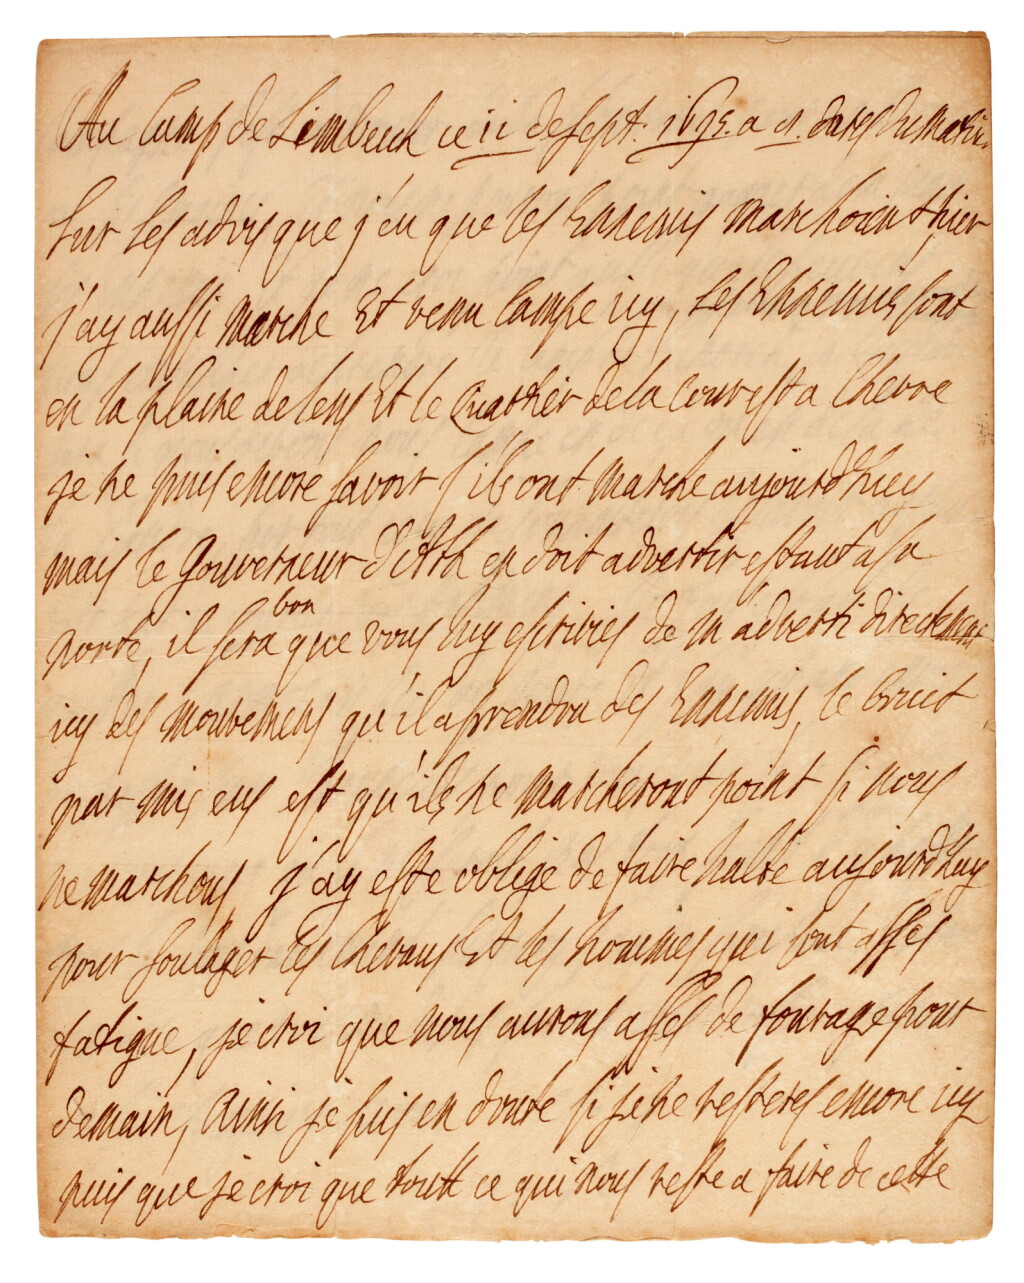 Au Camp de Limbeck ce 11 de Sept. 1695. a 9. dures du Matin.
Sur les advis que j'eu que les Ennemis marchoient hier
j'ay aussi marche Et venu campe icy, les Ennemis sont
en la plaine de lens Et le Quartier de la Cour est a Chevre
je ne puis encore savoir s'ils ont marche aujourd'huy
mais le Gouverneur d'Ath en doit advertir estant a sa
porte, il sera bon que vous luy escrivies de m'adverti directement
icy des mouvemens qu'il aprendra des Ennemis, le bruit
par mis eus est qu'ils ne marcheront point si nous
ne marchons j'ay este oblige de faire halte aujourd'huy
pour soulager les Chevaus Et les hommes qui sont asses
fatigue, je croi que nous aurons asses de fourage pour
demain, Ainsi je suis en doute si je ne resteres encore icy
puis que je croi que toutt ce qui nous reste a faire de cette